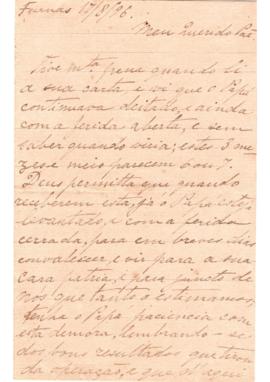 Furnas 17/8/96.
Meu Querido Pae.
Tive mta. pena quando li
a sua carta e vi que o Papá
continuava deitado, e ainda
com a ferida aberta, e sem
saber quando viria; estes 3 me
zes e meio parecem 6 ou 7.
Deus permitta que quando
receberem esta, já o Papá esteja
levantado, e com a ferida
cerrada, para em breves dias
convalescer, e vir para a sua
cara patria, e para juncto de
nos que tanto o estimamos,
tenha o Papá paciencia com
esta demora, lembrando-se
dos bons resultados que tirou
da operação, e que aqui